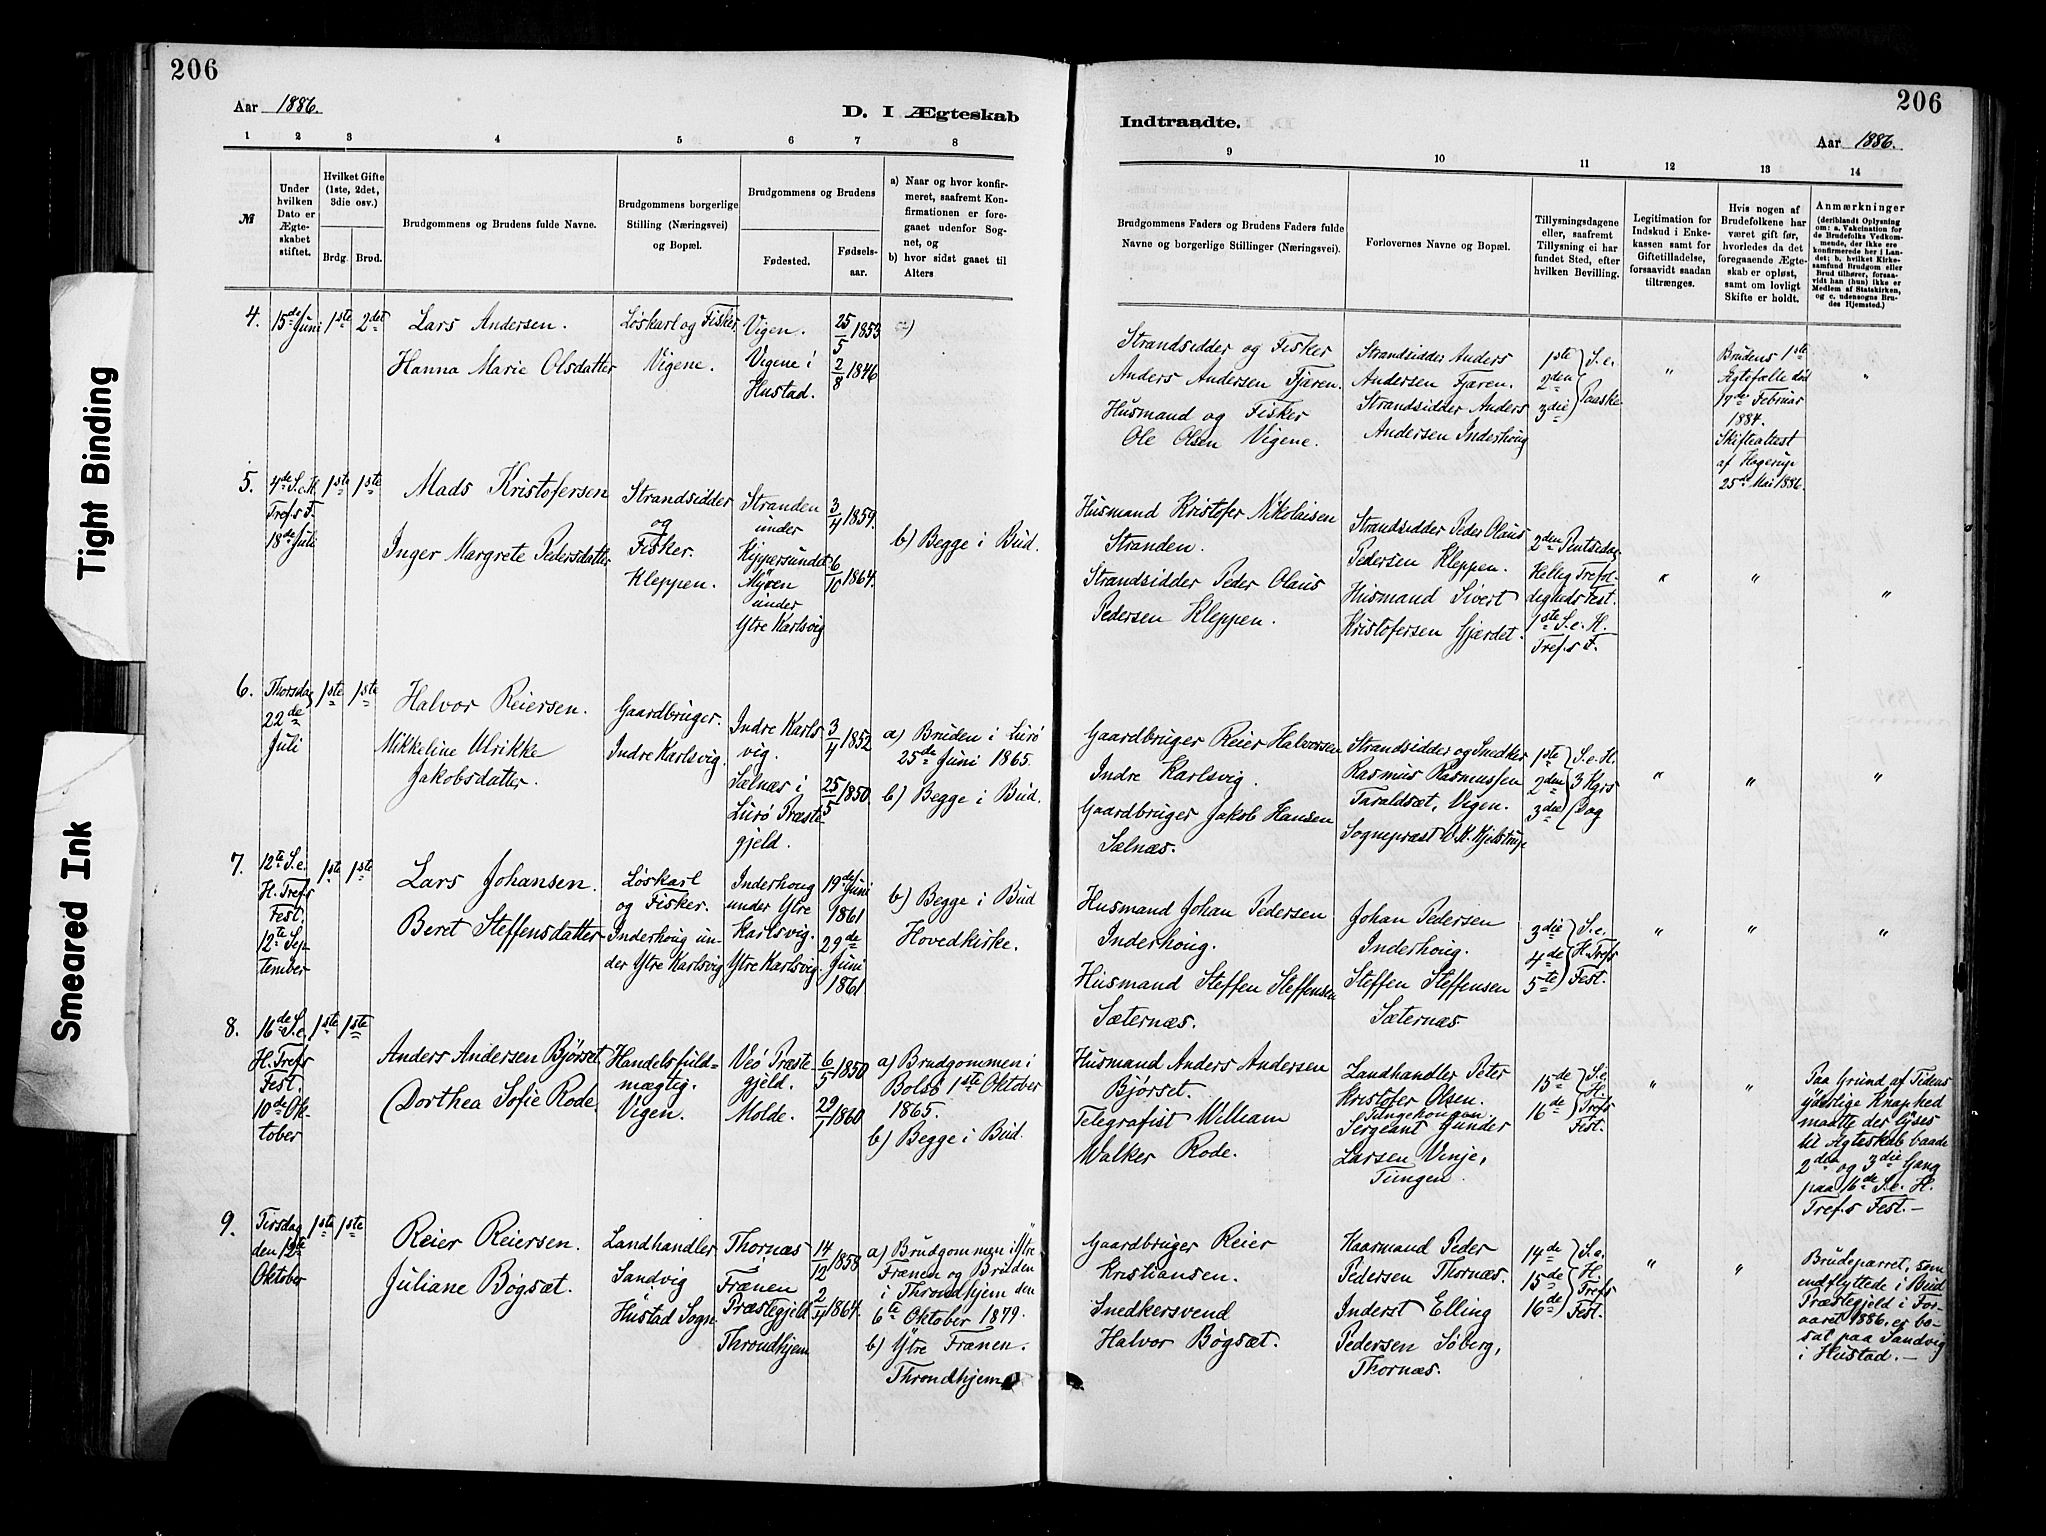 206
Aar 1886.
D. I Ægteskab
1 2 3 4 5 6 7 8
№
Under hvilken Dato er Ægteskabet stiftet.
Hvilket Gifte (1ste, 2det, 3die osv.)
Brdg. Brud.
Brudgommens og Brudens fulde Navne.
Brudgommens borgerlige Stilling (Næringsvei) og Bopæl.
Brudgommens og Brudens
Fødested. Fødselsaar.
a) Naar og hvor konfirmeret, saafremt Konfirmationen er foregaaet udenfor Sognet, og
b) hvor sidst gaaet til Alters
4. 15de Juni 1ste 2det
Lars Andersen.
Hanna Marie Olsdatter
Løskarl og Fisker.
Vigene.
Vigen.
Vigene i
Hustad.
25/5 1853
2/8 1846
a)
5. 4de S.e.H.
Tref.s F.
18de Juli
1ste 1ste
Mads Kristofersen
Inger Margrete Pedersdatter
Strandsidder
og
Fisker.
Kleppen.
Stranden
under
Kyppersundet
Myren
under
Ytre Karlsvig
3/4 1859.
6/10 1864.
b) Begge i Bud.
6. Thorsdag
22de
Juli
1ste 1ste
Halvor Reiersen.
Mikkeline Ulrikke
Jakobsdatter.
Gaardbruger.
Indre Karlsvig.
Indre Karls-
vig.
Sælnæs i
Lurø Præste-
gjeld.
3/4 1852
25/5 1850.
a) Bruden i Lurø
25de Juni 1865.
b) Begge i Bud.
7. 12te S.e.
H. Trefs
Fest.
12te Sep-
tember
1ste 1ste
Lars Johansen.
Beret Steffensdatter
Løskarl
og Fisker.
Inderhoug un-
der Ytre Karlsvig
Inderhoug
under Ytre
Karlsvig.
Ytre Karlsvig.
19de Juni
1861
29de
Juni
1861
b) Begge i Bud
Hovedkirke.
8. 16de S.e.
H. Trefs
Fest.
10de Ok-
tober
1ste 1ste
Anders Andersen Bjørset
Dorthea Sofie Rode.
Handelsfuld-
mægtig.
Vigen.
Veø Præste-
gjeld.
Molde.
6/5 1850
29/1 1860
a) Brudgommen i
Bolsø 1ste Oktober
1865.
b) Begge i Bud.
9. Tirsdag
den 12te
Oktober
1ste 1ste
Reier Reiersen.
Juliane Bøgsæt.
Landhandler
Sandvig
i
Hustad Sogn
Thornæs
i
Frænen
Præstegjeld
Throndhjem
14/12 1858
2/4 1864.
a) Brudgommen i Ytre
Frænen og Bruden
i Throndhjem den
6te Oktober 1879.
b) Ytre Frænen.
Throndhjem
206
Indtraadte.
Aar 1886.
9 10 11 12 13 14
Brudgommens Faders og Brudens Faders fulde Navne og borgerlige Stillinger (Næringsvei).
Forlovernes Navne og Bopæl.
Tillysningsdagene eller, saafremt Tillysning ei har fundet Sted, efter hvilken Bevilling.
Legitimation for Indskud i Enkekassen samt for Giftetilladelse, forsaavidt saadan tiltrænges.
Hvis nogen af Brudefolkene har været gift før, hvorledes da det foregaaende Ægteskab er opløst, samt om lovligt Skifte er holdt.
Anmærkninger
(deriblandt Oplysning om: a. Vakcination for de Brudefolks Vedkommende, der ikke ere konfirmerede her i Landet; b. hvilket Kirkesamfund Brudgom eller Brud tilhører, forsaavidt han (hun) ikke er Medlem af Statskirken, og c. udensogns Brudes Hjemsted.)
Strandsidder og Fisker
Anders Andersen Fjæren.
Husmand og Fisker
Ole Olsen Vigene.
Strandsidder Anders
Andersen Fjæren.
Strandsidder Anders
Andersen Inderhoug
1ste
2den
3die
S. e.
Paaske
"
Brudens 1ste
Ægtefælle død
17de Februar
1884.
Skifteattest
af Hagerup
25de Mai 1886.
"
Husmand Kristofer Nikolaisen
Stranden.
Strandsidder Peder Olaus
Pedersen Kleppen.
Strandsidder Peder Olaus
Pedersen Kleppen.
Husmand Sivert
Kristofersen Gjerdet.
2den Pentsidag
Hellig Trefol-
digheds Fest.
1ste S. e. H.
Tref.s F.
" " "
Gaardbruger Reier Halvorsen
Indre Karlsvig.
Gaardbruger Jakob Hansen
Sælnæs.
Strandsidder og Snedker
Rasmus Rasmussen
Taraldsæt, Vigen.
Sognepræst O. K. Kjelstrup
1ste
2den
3die
S. e. H.
3 Kgrs
Dag
" " "
Husmand Johan Pedersen
Inderhoug.
Husmand Steffen Steffensen
Sæternæs.
Johan Pedersen
Inderhoug.
Steffen Steffensen
Sæternæs.
3die
4de
5te
S. e.
H. Trefs
Fest.
" " "
Husmand Anders Andersen
Bjørset.
Telegrafist William
Walker Rode.
Landhandler Peter
Kristofer Olsen.
Sergeant Gunder
Larsen Vinje,
Tungen.
15de
16de
S. e.
H.
Trefs
Fest.
" "
Paa Grund af Tidens
yderlige Knaphed
maatte der lyses
til Ægteskab baade
2den og 3die Gang
paa 16de S. e. H.
Tref.s Fest.—
Gaardbruger Reier
Kristiansen.
Snedkersvend
Halvor Bøgsæt.
Kaarmand Peder
Pedersen Thornæs.
Inderst Elling
Pedersen Søberg,
Thornæs.
14de
15de
16de
S. e.
H.
Trefs
Fest.
" "
Brudeparret, som
indflyttede i Bud
Præstegjeld i For-
aaret 1886, er bo-
sat paa Sandvig
i Hustad.—
Tight Binding
Smeared Ink